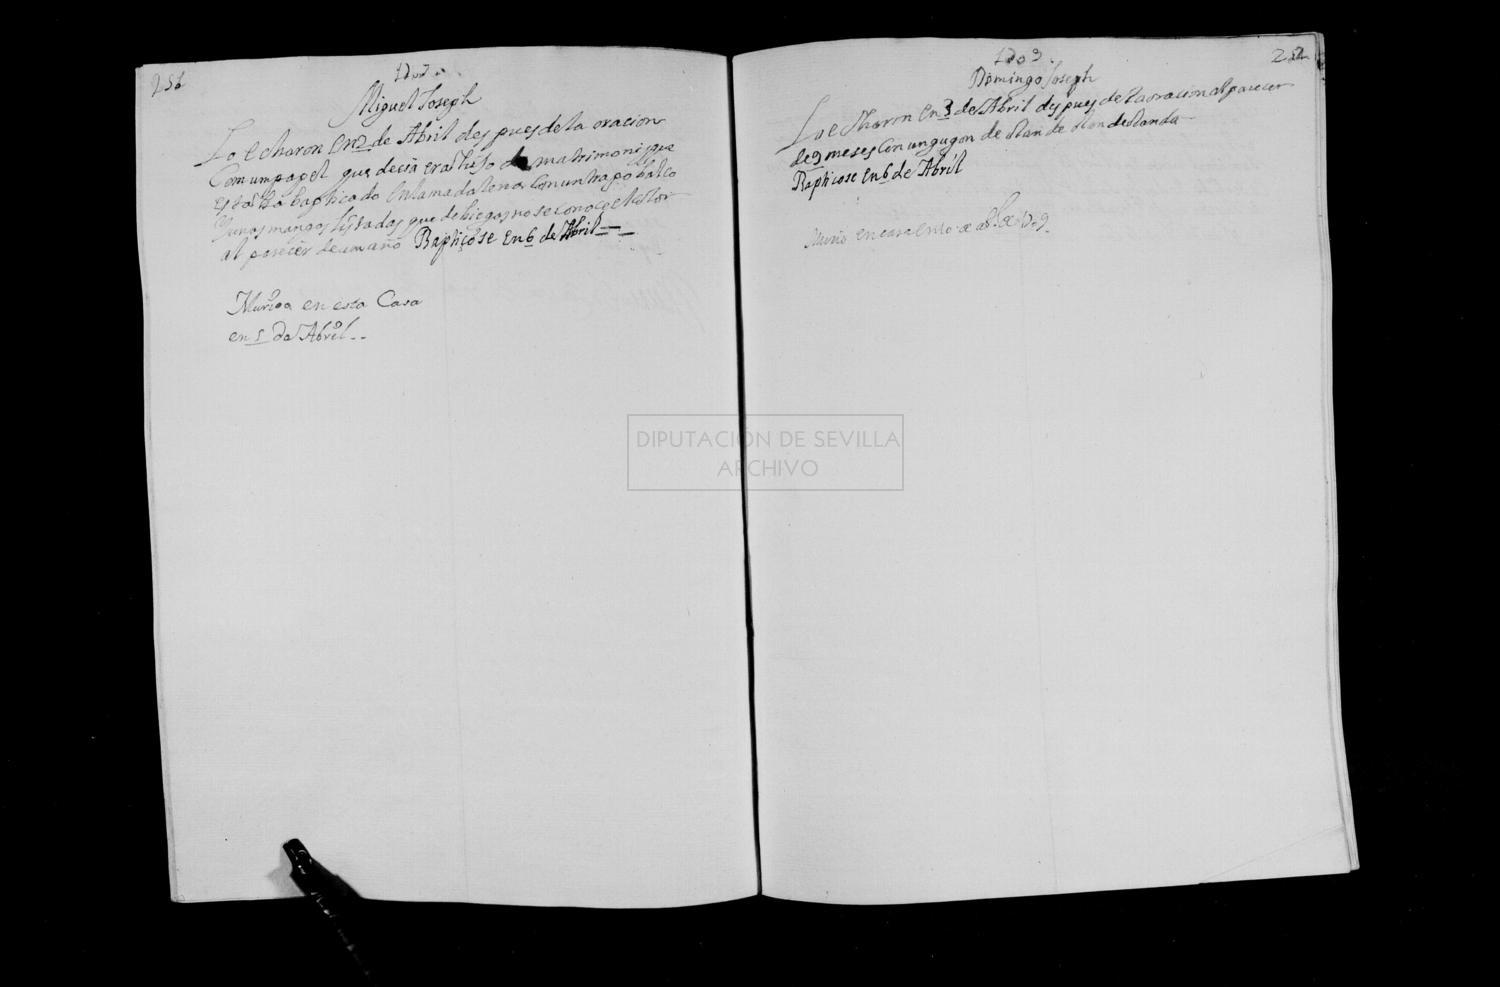 251
1709
Miguel Joseph
Lo echaron En 2 de Abril des pues de la oracion
Com un papel que decia era hijo de matrimonio y que
estaba baptiçado Con un trapo
Y unas mangas listadas que de biegas no se conoce el color
al parecer de un año Baptiçose En 6 de Abril
Murió en esta Casa
en 1 de Abril
1709
252
Domingo Joseph
Lo echaron En 3 de Abril des pues de la oracion al parecer
de 9 meses Con un gugon de
Baptiçose En 6 de Abril
Murio En casa En 10 de abl. de 1709
DIPUTACIÓN DE SEVILLA
ARCHIVO